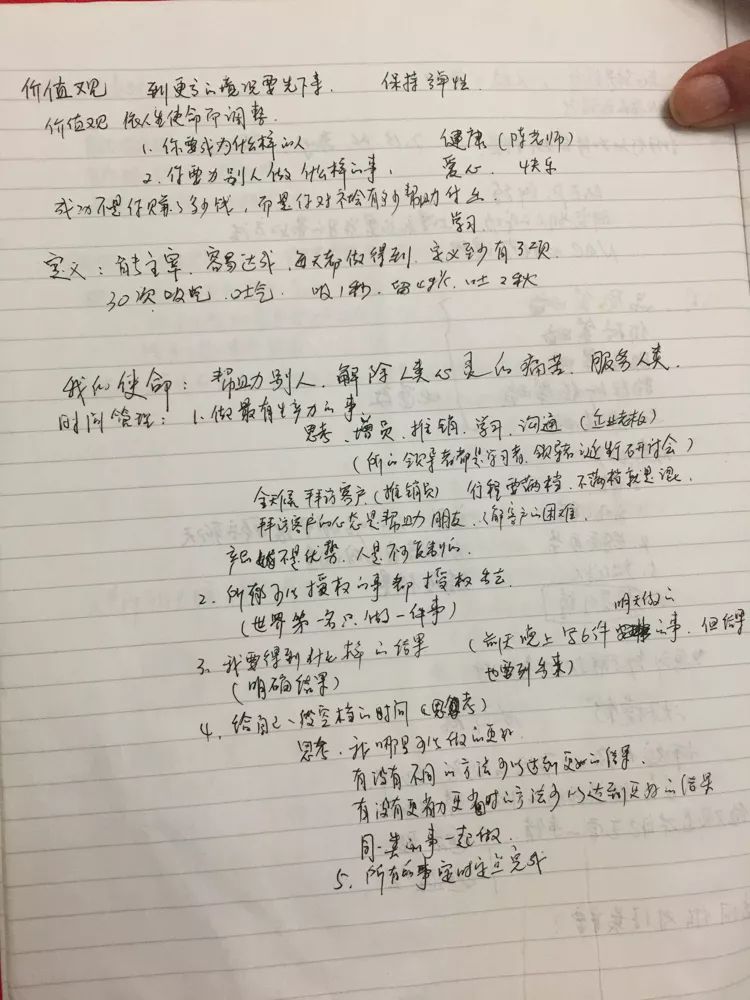 价值观 到更高的境况要先下来. 保持弹性.
价值观 依人生使命而调整.
1. 你要成为什么样的人 健康 (陈老师)
2. 你要为别人做什么样的事. 爱心. 快乐
成功不是你赚了多少钱, 而是你对社会有多少帮助付出.
学习
定义: 自己主宰. 容易达成, 每天都做得到. 定义至少有3项.
30次吸气. 吐气. 吸1秒. 留4秒. 吐2秒
我的使命: 帮助别人. 解除人类心灵的痛苦. 服务人类.
时间管理: 1. 做最有生产力的事
思考. 增员. 推销. 学习. 沟通 (企业老板)
(所有领导者都是学习者. 领导者 研讨会)
全天候拜访客户 (推销员) 行程要满档. 不满档就是混.
拜访客户的心态是帮助朋友. 了解客户的困难.
产品 不是优势. 人是不可复制的.
2. 所有可以授权的事都授权出去.
(世界第一名只做一件事)
3. 我要得到什么样的结果 (前天晚上写6件明天做的 事. 但结果
(明确结果) 也要列出来)
4. 给自己一段空档的时间 (思考)
思考. 我哪里可以做的更好.
有没有不同的方法可以达到更好的结果.
有没有更省力更省时的方法可以达到更好的结果
同一类的事一起做.
5. 所有的事定时定点完成